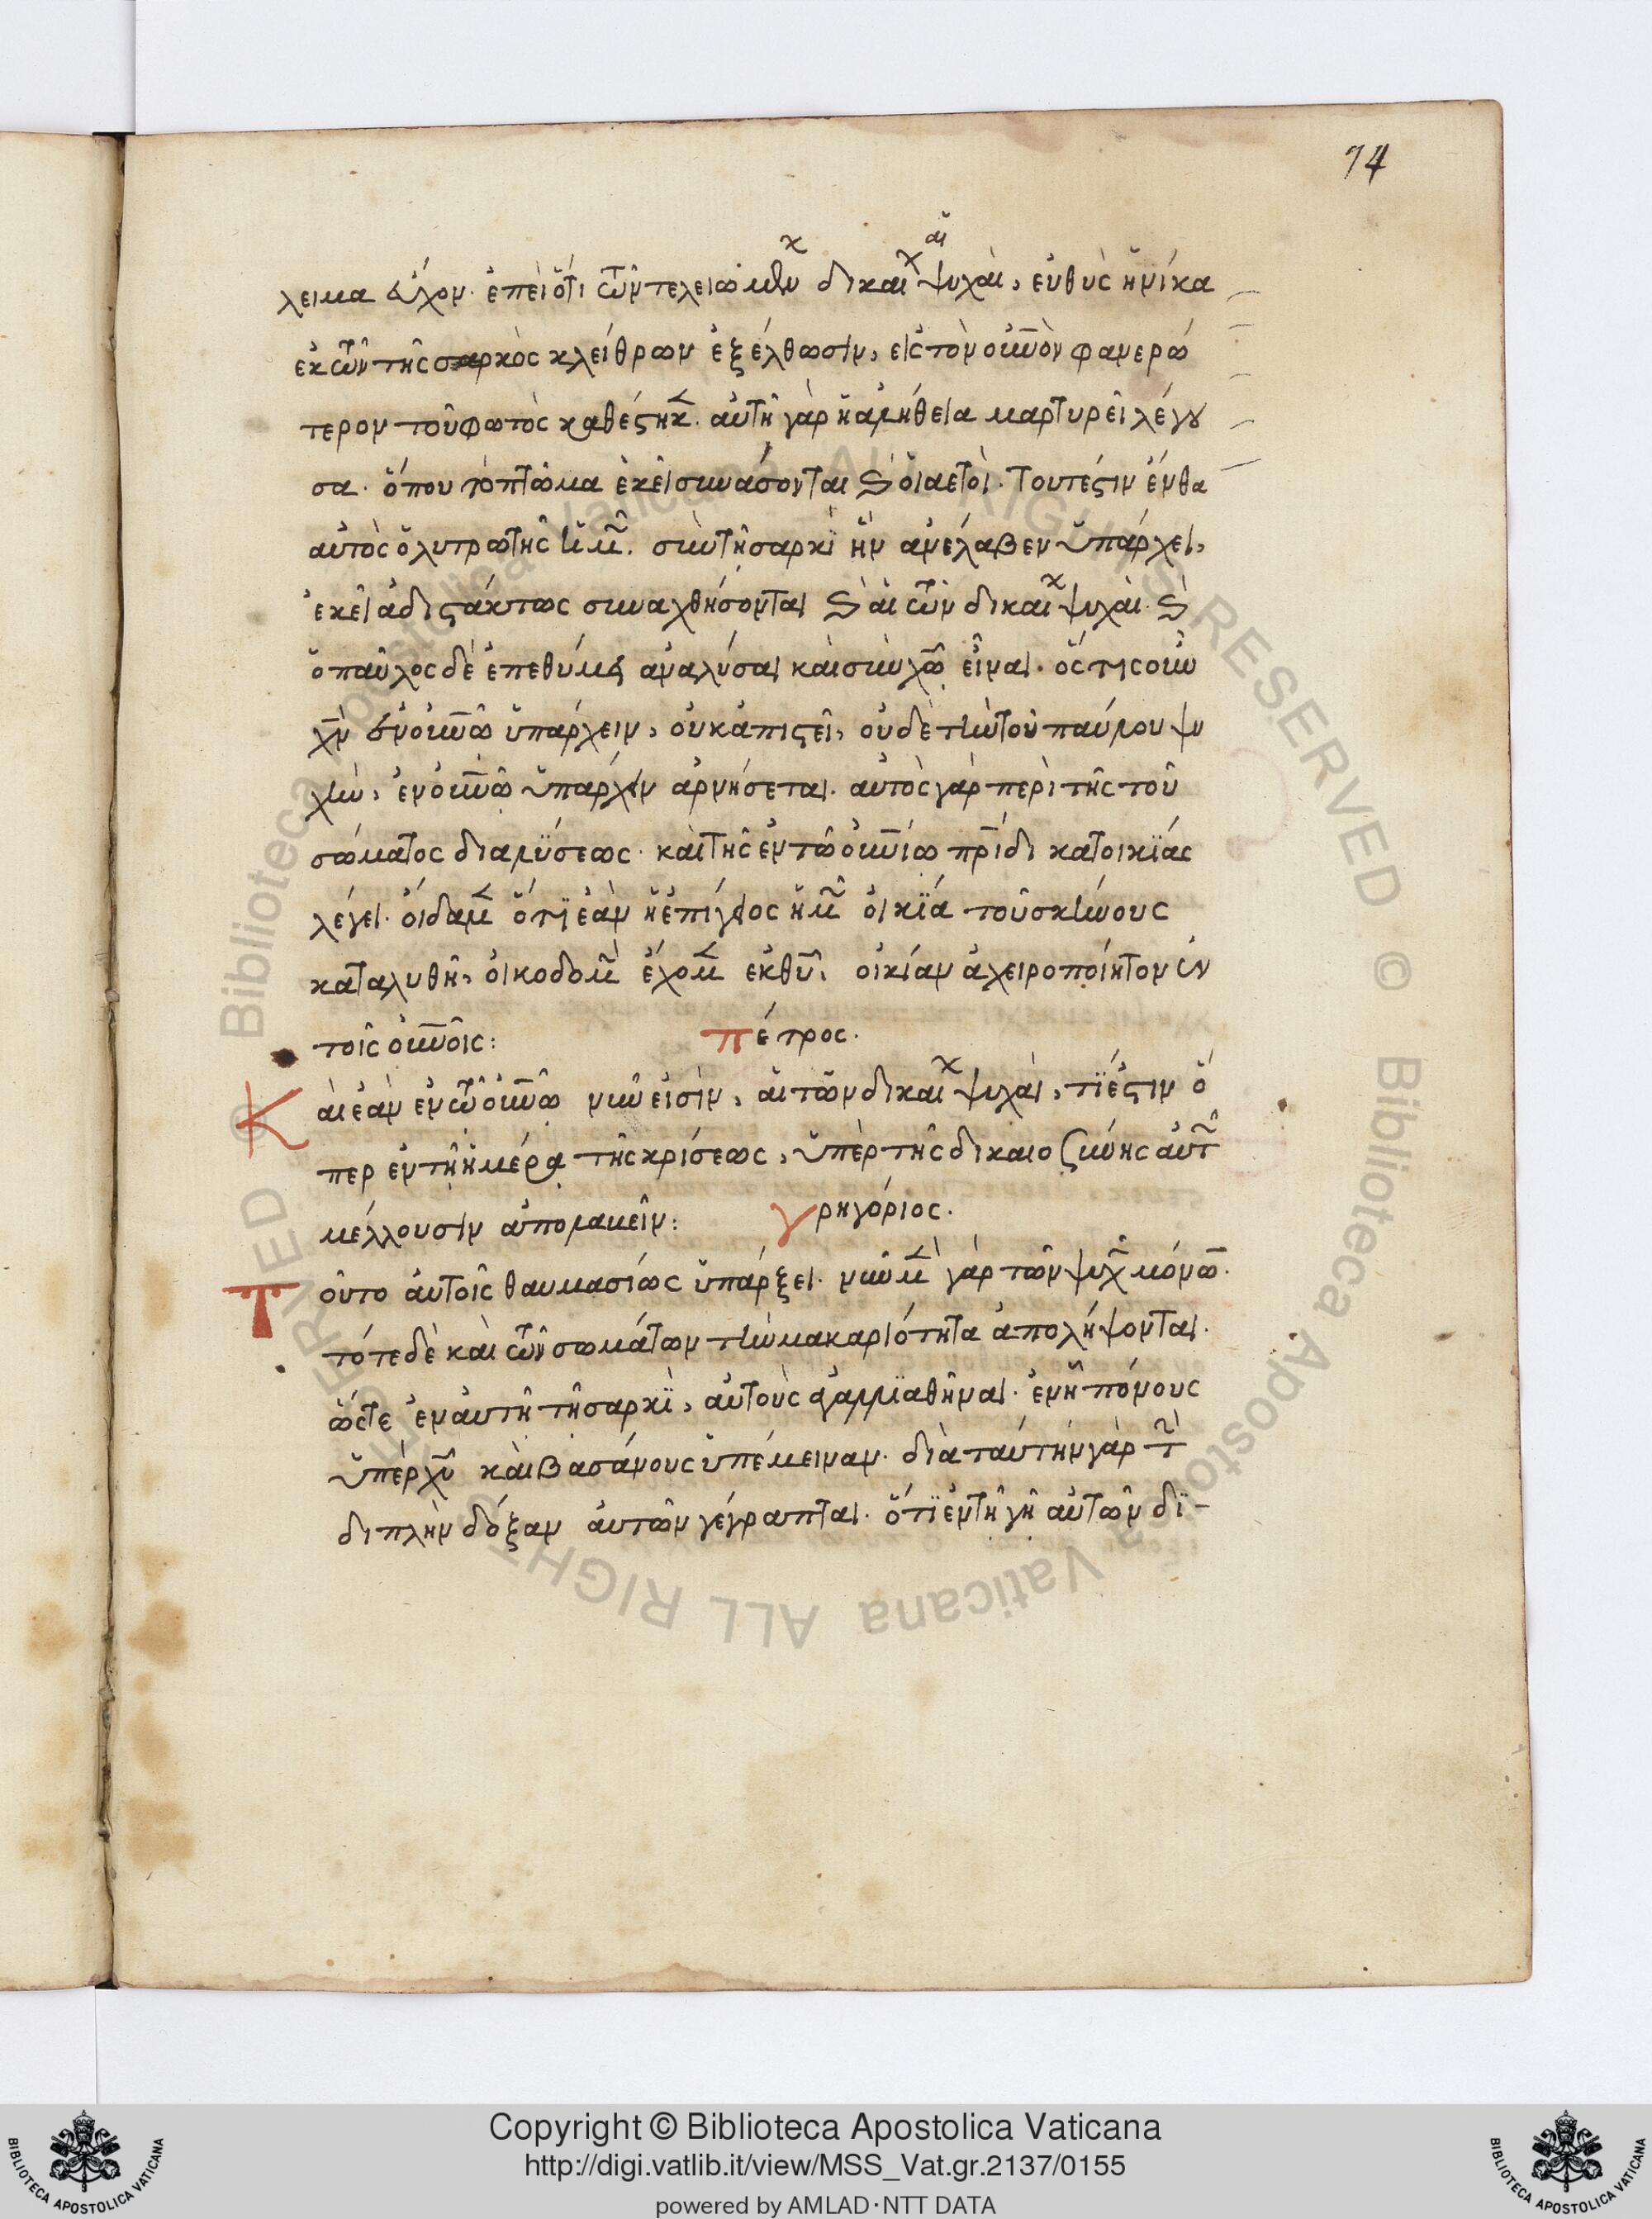 74
λειμα ἔχον· ἐπεὶ ὅτι τῶν τελείων δικαί ψυχαὶ, εὐθὺς ἡνίκα
ἐκ τῶν τῆς σαρκὸς κλείθρων ἐξέλθωσιν, εἰς τὸν οὐνὸν φανερώ
τερον τοῦ φωτὸς καθέστηκ. αὐτὴ γὰρ ἡ ἀλήθεια μαρτυρεῖ λέγου
σα· ὅπου τὸ πτῶμα ἐκεῖ συνάσονται καὶ οἱ αετοὶ· τουτέστιν ἔνθα
αὐτὸς ὁ λυτρωτὴς ἡμ. σὺν τῇ σαρκὶ ἣν ἀνέλαβεν ὑπάρχει,
ἐκεῖ ἀδιστάκτως συναχθήσονται καὶ αἱ τῶν δικαί ψυχαὶ· καὶ
ὁ παῦλος δὲ ἐπεθύμει ἀναλύσαι καὶ σὺν χῶ εἶναι· ὅς τις οὖν
χν ἐν οὐνῶ ὑπάρχειν, οὐκ ἀπιστεῖ, οὐδὲ τὴν τοῦ παύλου ψυ
χὴν, ἐν οὐνῶ ὑπάρχειν ἀρνήσεται· αὐτὸς γὰρ περὶ τῆς τοῦ
σώματος διαλύσεως· καὶ τῆς ἐν τῷ οὐνίω πρίδι κατοικίας
λέγει· οἴδαμ ὅτι ἐὰν ἡ ἐπίγειος ἡμ οἰκία τοῦ σκήνους
καταλυθῆ, οἰκοδομ ἔχομ ἐκ θυ, οἰκίαν ἀχειροποίητον ἐν
τοῖς οὐνοῖς: πέτρος·
Καὶ ἐὰν ἐν τῷ οὐνῶ νῦν εἰσὶν, αἱ τῶν δικαί ψυχαὶ, τί ἐστιν ὅ
περ ἐν τῇ ἡμέρᾳ τῆς κρίσεως, ὑπὲρ τῆς δικαιοσύνης αὐτ
μέλλουσιν ἀπολαβεῖν: γρηγόριος·
Τοῦτο αὐτοῖς θαυμασίως ὑπάρξει· νῦν μ γὰρ τῶν ψυχ μόνω·
τότε δὲ καὶ τῶν σωμάτων τὴν μακαριότητα ἀπολήψονται·
ὥστε ἐν αὐτῇ τῇ σαρκὶ, αὐτοὺς ἀγαλλιαθῆναι· ἐν ᾗ πόνους
ὑπὲρ χυ καὶ βασάνους ὑπέμειναν· διὰ ταύτην γὰρ τ
διπλὴν δόξαν αὐτῶν γέγραπται· ὅτι ἐν τῇ γῇ αὐτῶν δι-
Copyright © Biblioteca Apostolica Vaticana
http://digi.vatlib.it/view/MSS_Vat.gr.2137/0155
powered by AMLAD·NTT DATA